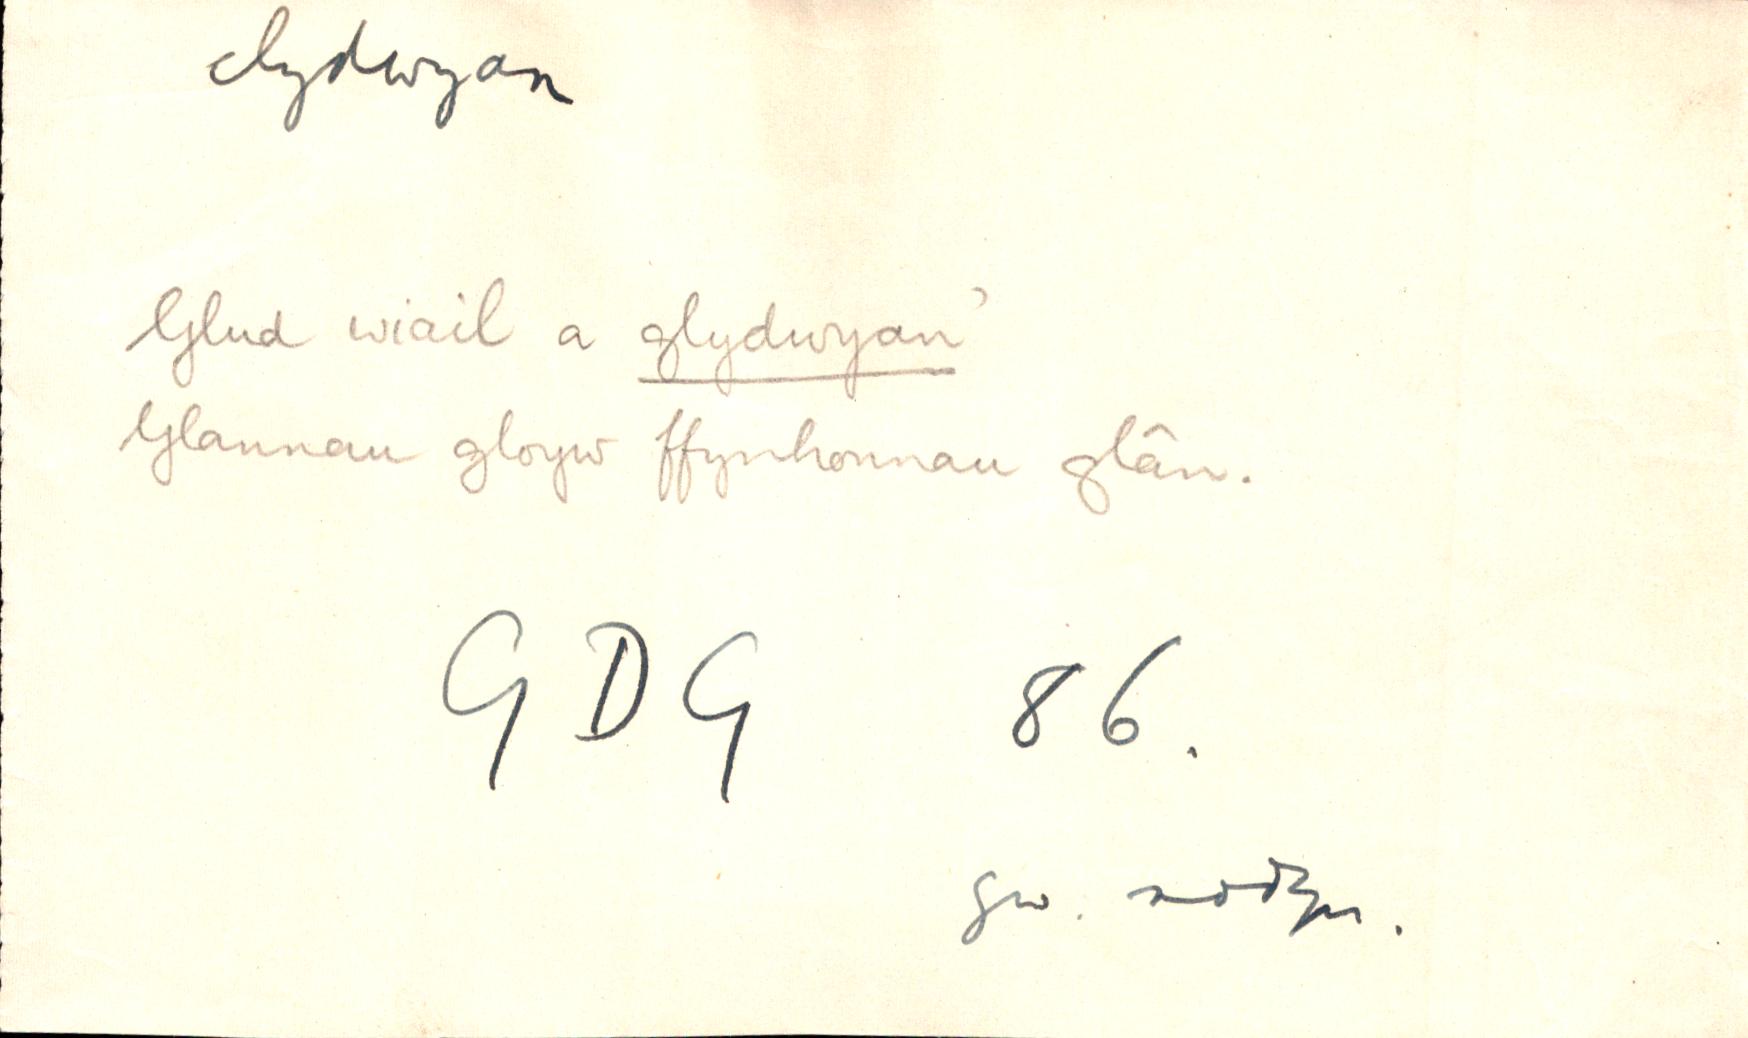 clydwyan
Glud wiail a glydwyan'
Glannau gloyw ffynhonnau glân.
GDG 86.
gw. nodyn.